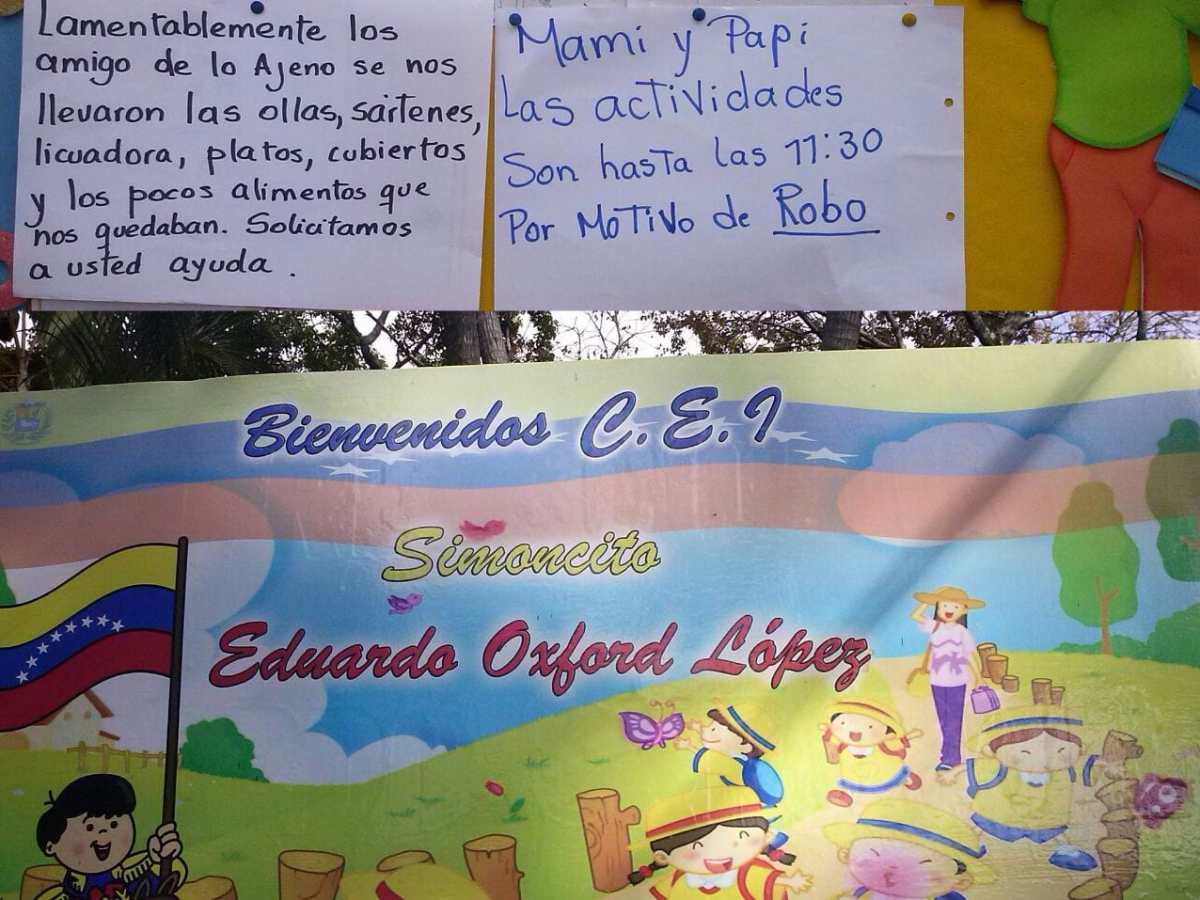 Lamentablemente los
amigo de lo Ajeno se nos
llevaron las ollas, sartenes,
licuadora, platos, cubiertos
y los pocos alimentos que
nos quedaban. Solicitamos
a usted ayuda.
Mami y Papi
Las actividades
Son hasta las 11:30
Por Motivo de Robo
Bienvenidos C.E.I
Simoncito
Eduardo Oxford López